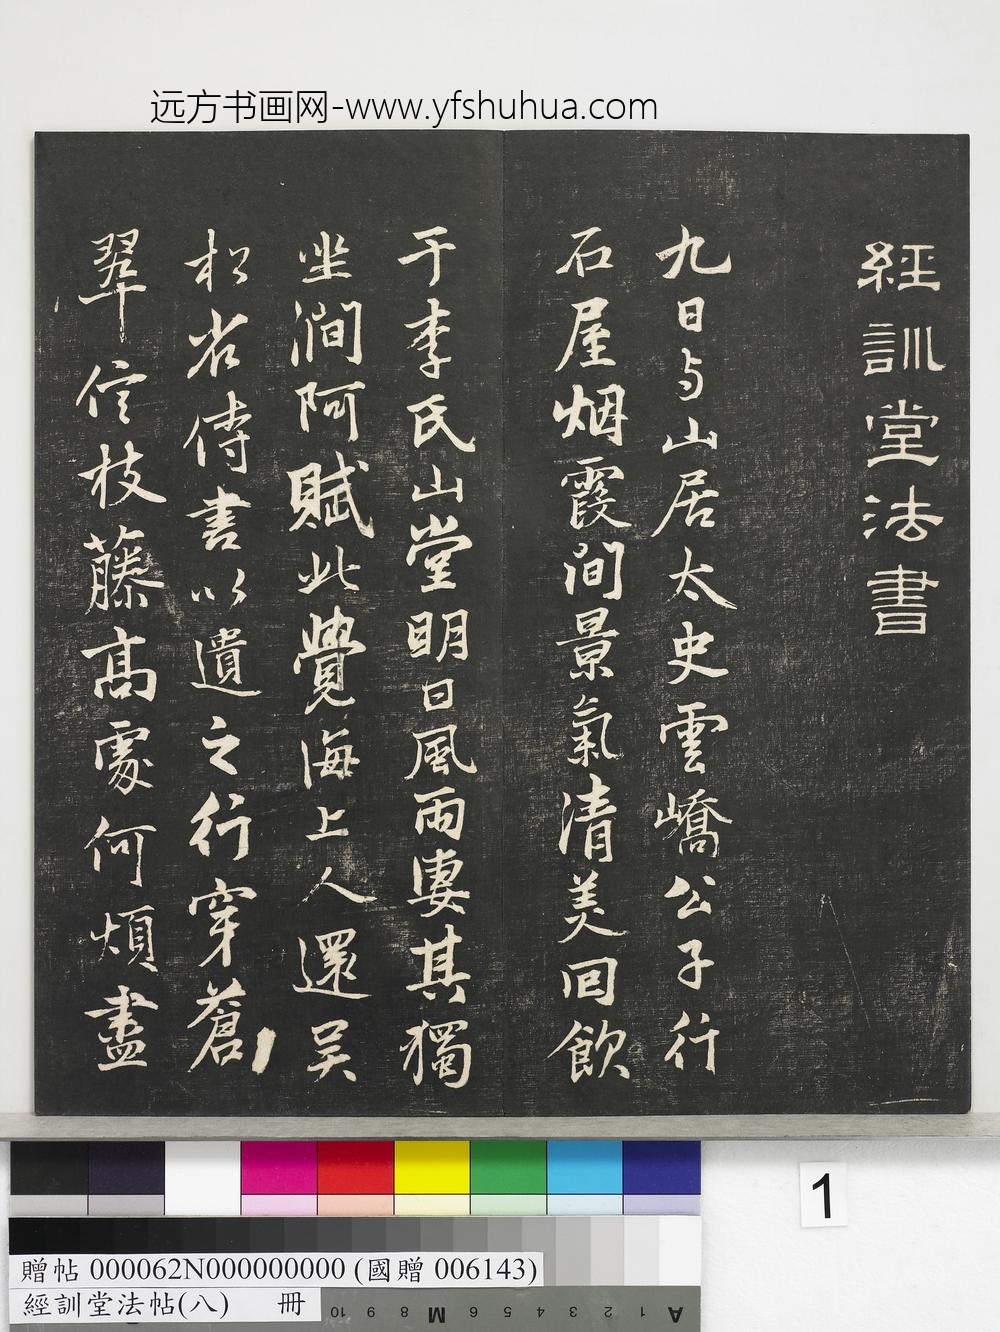 远方书画网-www.yfshuhua.com
經訓堂法書
九日与山居太史雲嶠公子行
石屋烟霞间景氣清美回飲
于李氏山堂明日風雨凄其獨
坐澗阿賦此覺海上人還吴
松省侍書以遺之行穿蒼
翠信枝藤髙處何煩盡
1
贈帖 000062N000000000 (國贈 006143)
經訓堂法帖(八) 冊
10 9 8 M 6 5 4 3 2 1 A